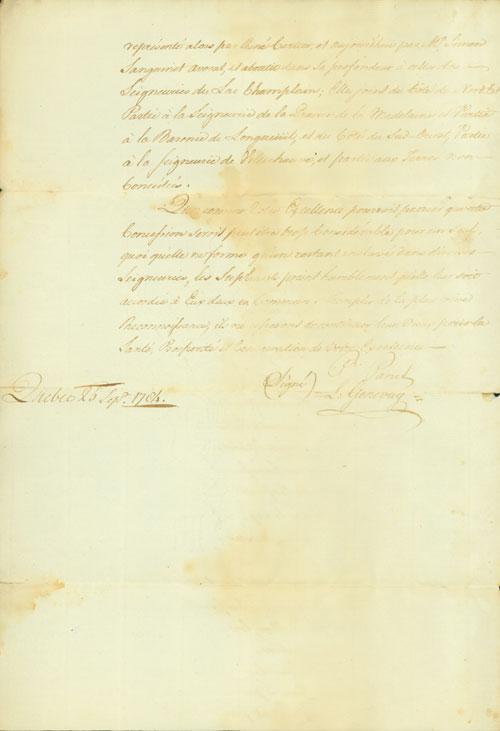 représenté alors par René Cartier, et aujourdhui par Mr. Simon
Sanguinet avocat, et aboutit dans sa profondeur à celles des
Seigneuries du Lac Champlain, Elle joint du Côté du Nord Est
Partie à la Seigneurie de la Prairie de la Madelaine et Partie
à la Baronie de Longueuil, et du Côté du Sud Ouest, Partie
à la seigneurie de Villechauve, et partie aux Terres non
Concédées.
Que comme Votre Excellence pourroit penser que cette
Concession seroit peut être trop Considérable pour un seul,
quoi qu'elle ne forme qu'un restant enclavé dans diverses
Seigneuries, les Supliants prient humblement qu'elle leur soit
accordée à Eux deux en Commun. Remplis de la plus vive
Reconnoissance, ils ne cesseront de continuer leurs Vœux pour la
Santé, Prosperité et Conservation de Votre Excellence
(Signé) P. Panet
L. Genevay
Quebec 26 Sepr. 1784.